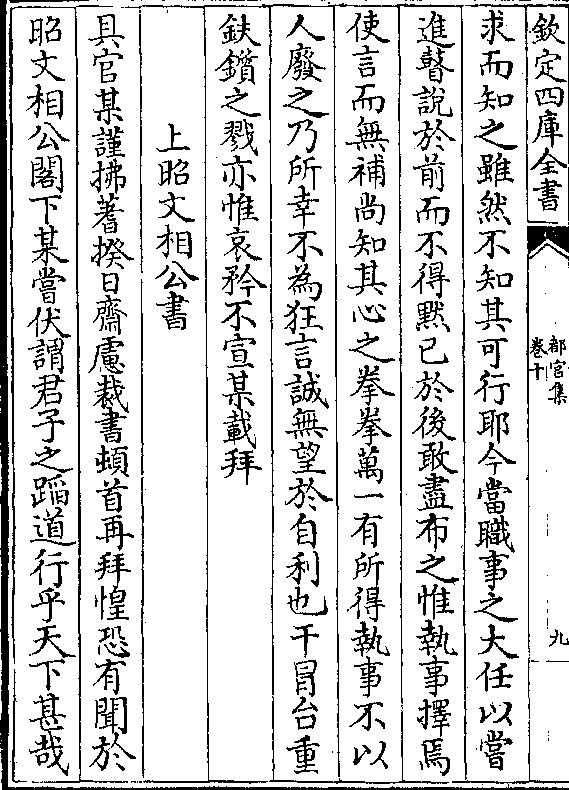 欽定四庫全書
都官集
卷十
九
求而知之雖然不知其可行耶今當職事之大任以當
進瞽說於前而不得黙已於後敢盡布之惟執事擇焉
使言而無補尚知其心之拳拳萬一有所得執事不以
人廢之乃所幸不為狂言誠無望於自利也干冒台重
鈇鑕之戮亦惟哀矜不宣某載拜
上昭文相公書
具官某謹拂蓍揆日齋慮裁書頓首再拜惶恐有聞於
昭文相公閣下某嘗伏謂君子之蹈道行乎天下甚哉